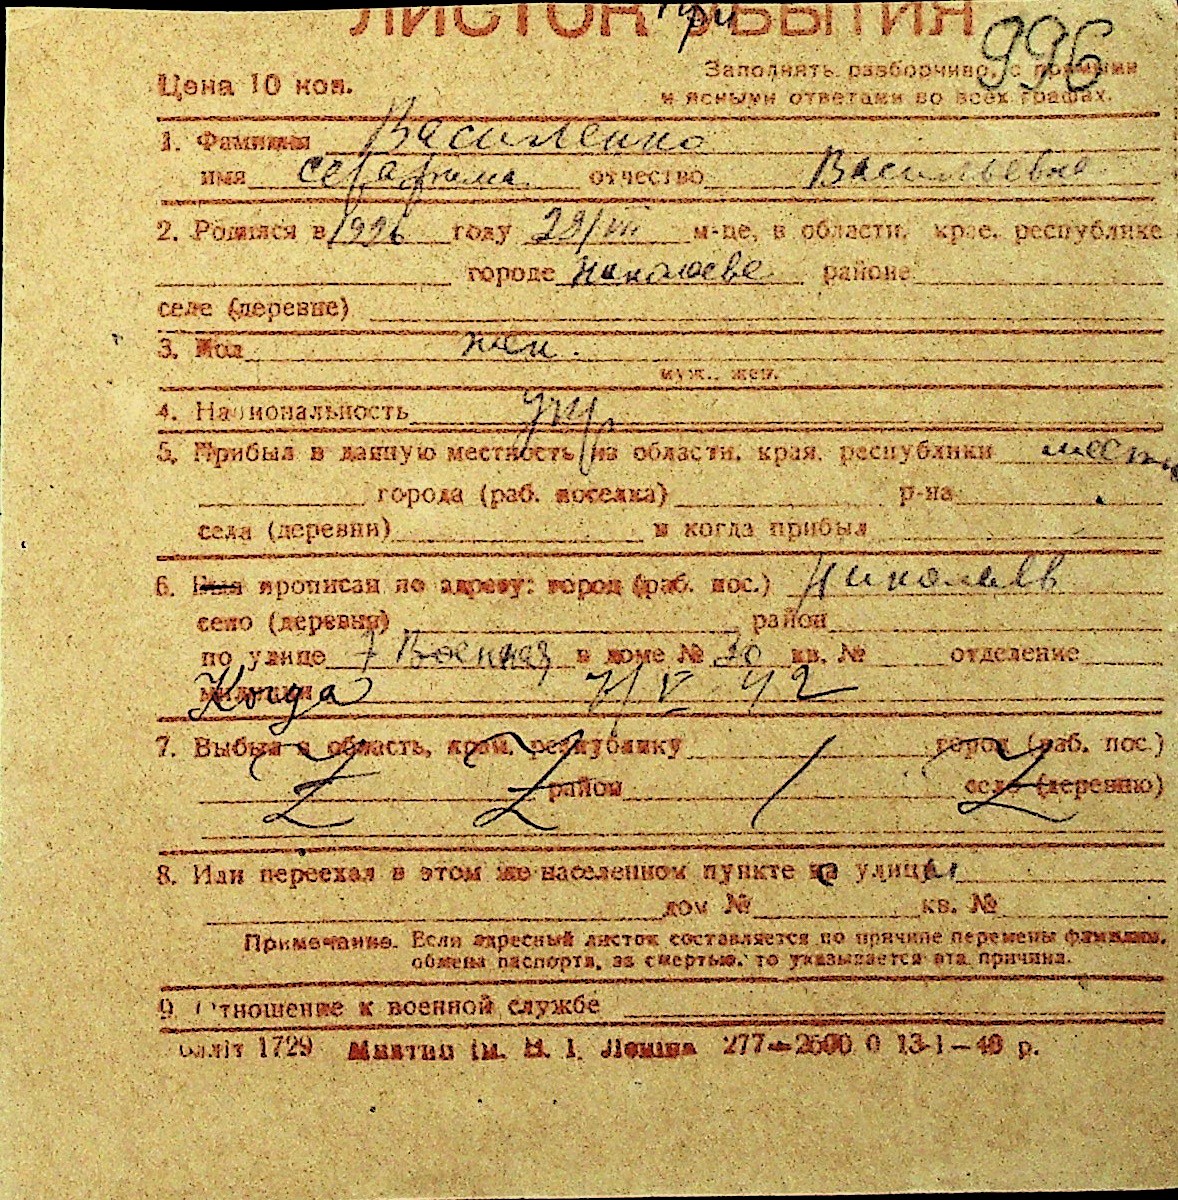 ЛИСТОК при УБЫТИЯ
996
Цена 10 коп.
Заполнять разборчиво, с прямыми
и ясными ответами во всех графах.
1. Фамилия Василенко
имя Серафима отчество Васильевна
2. Родился в 1926 году 28/VIII м-це, в области, крае, республике
городе Николаеве районе
селе (деревне)
3. Пол жен.
муж., жен.
4. Национальность укр
5. Прибыл в данную местность из области, края, республики местн
города (раб. поселка) р-на
села (деревни) и когда прибыл
6. Был прописан по адресу: город (раб. пос.) Николаев
село (деревня) район
по улице 7 Военная в доме № 30 кв. № отделение
милиции Когда 7/V 42
7. Выбыл в область, край, республику город (раб. пос.)
район село (деревню)
8. Или переехал в этом же населенном пункте на улицу
дом № кв. №
Примечание. Если адресный листок составляется по причине перемены фамилии,
обмена паспорта, за смертью, то указывается эта причина.
9. Отношение к военной службе
1729 ім. В. І. Леніна 277—2600 0 13-1—40 р.